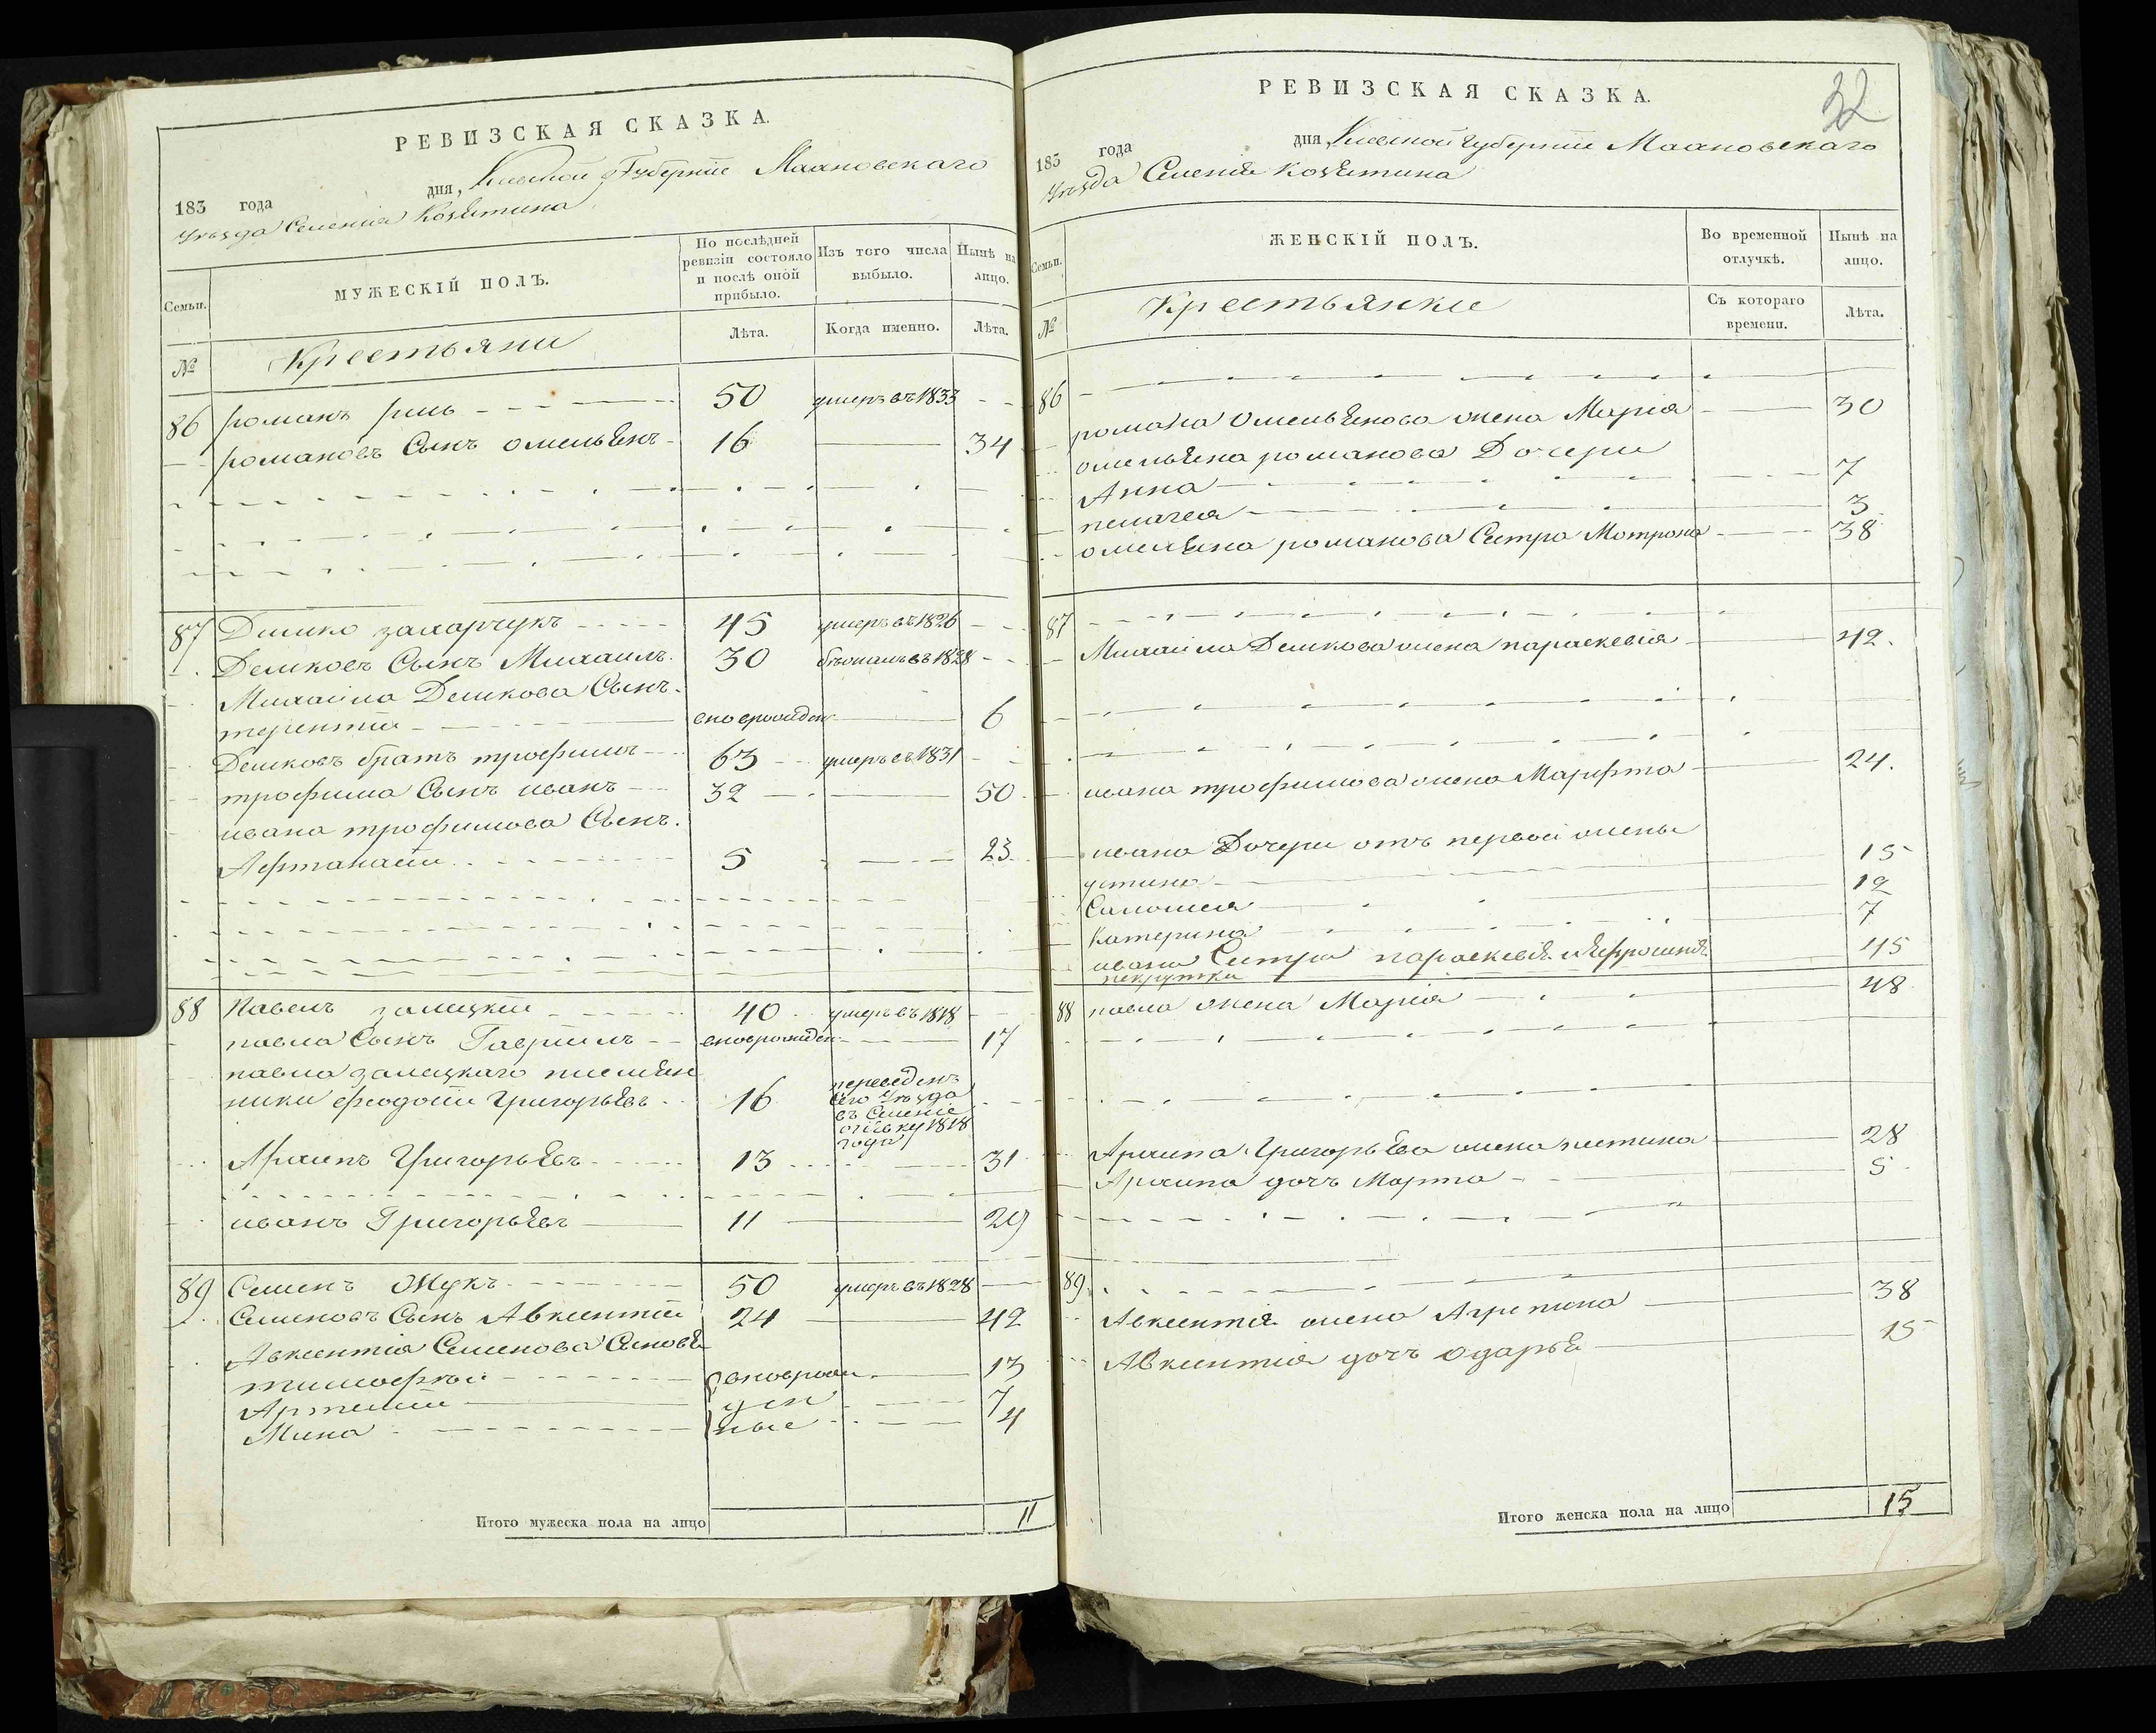 РЕВИЗСКАЯ СКАЗКА.
183 года дня, Киевской Губернiи Махновскаго
Уѣзда Селенiя Козятина
Семьи.
МУЖЕСКIЙ ПОЛЪ.
По послѣдней ревизiи состояло и послѣ оной прибыло.
Изъ того числа выбыло.
Нынѣ на лицо.
№
Крестьяни
Лѣта.
Когда именно.
Лѣта.
86 романъ 50 умеръ въ 1833
романовъ Сынъ омельянъ 16 34
87 Демко захарчукъ 45 умеръ въ 1826
Демковъ Сынъ Михаилъ 30 бѣжалъ въ 1828
Михайла Демкова Сынъ
терентiй вновърожден 6
Демковъ братъ трофимъ 63 умеръ въ 1831
трофима Сынъ иванъ 32 50
ивана трофимова Сынъ
Афтанасiй 5 23
88 Павелъ залецкiй 40 умеръ въ 1818
павла Сынъ Гаврiилъ вноврожден 17
павла залецкаго племян
ники феодосiй Григорьевъ 16 переведенъ
сего Уѣзда
въ Селенiе
1818
года
Архипъ Григорьевъ 13 31
иванъ Григорьевъ 11 29
89 Семенъ Жукъ 50 умеръ въ 1828
Семеновъ Сынъ Авксентiй 24 42
Авксентiя Семенова Сыновья
тимофѣй вноврож 13
Артемiй ден 7
Мина ные 4
Итого мужеска пола на лицо 11
32
РЕВИЗСКАЯ СКАЗКА.
183 года дня, Киевской губернiи Махновскаго
Уѣзда Селенiя Козятина
Семьи.
ЖЕНСКIЙ ПОЛЪ.
Во временной отлучкѣ.
Нынѣ на лицо.
№
Крестьянки
Съ котораго времени.
Лѣта.
86
романа Омельянова жена Марiя 30
омельяна романова Дочери
Анна 7
пелагея 3
омельяна романова Сестра Мотрона 38
87
Михайла Демкова жена параскевiя 42.
ивана трофимова жена Марфта 24.
ивана Дочери отъ первой жены
устина 15
Саломея 12
Катерина 7
ивана Сестры параскевiя и Ефросинiя 45
некрутки
88 павла жена Марiя 48
Архипа Григорьева жена устина 28
Архипа дочь Марта 5
89
Авксентiя жена Агрепина 38
Авксентiя дочь Одарья 15
Итого женска пола на лицо 15